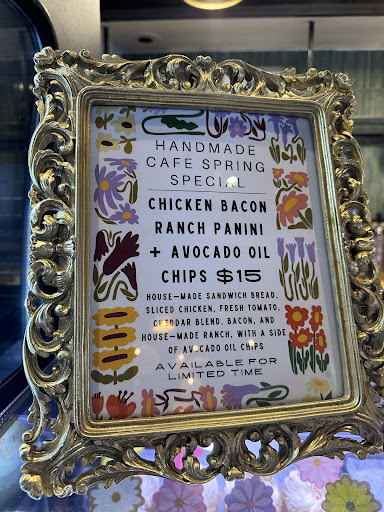 HANDMADE
CAFE SPRING
SPECIAL
CHICKEN BACON
RANCH PANINI
+ AVOCADO OIL
CHIPS $15
HOUSE-MADE SANDWICH BREAD,
SLICED CHICKEN, FRESH TOMATO,
CHEDDAR BLEND, BACON, AND
HOUSE-MADE RANCH, WITH A SIDE
OF AVOCADO OIL CHIPS
AVAILABLE FOR
LIMITED TIME